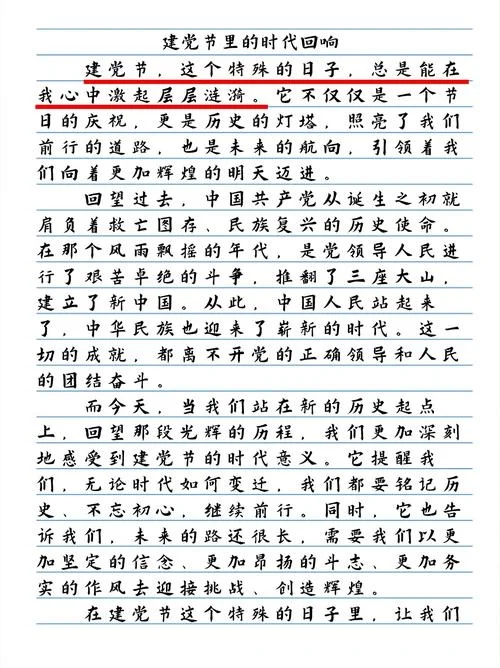 建党节里的时代回响
建党节，这个特殊的日子，总是能在
我心中激起层层涟漪。它不仅仅是一个节
日的庆祝，更是历史的灯塔，照亮了我们
前行的道路，也是未来的航向，引领着我
们向着更加辉煌的明天迈进。
回望过去，中国共产党从诞生之初就
肩负着救亡图存、民族复兴的历史使命。
在那个风雨飘摇的年代，是党领导人民进
行了艰苦卓绝的斗争，推翻了三座大山，
建立了新中国。从此，中国人民站起来
了，中华民族也迎来了崭新的时代。这一
切的成就，都离不开党的正确领导和人民
的团结奋斗。
而今天，当我们站在新的历史起点
上，回望那段光辉的历程，我们更加深刻
地感受到建党节的时代意义。它提醒我
们，无论时代如何变迁，我们都要铭记历
史、不忘初心，继续前行。同时，它也告
诉我们，未来的路还很长，需要我们以更
加坚定的信念、更加昂扬的斗志、更加务
实的作风去迎接挑战、创造辉煌。
在建党节这个特殊的日子里，让我们